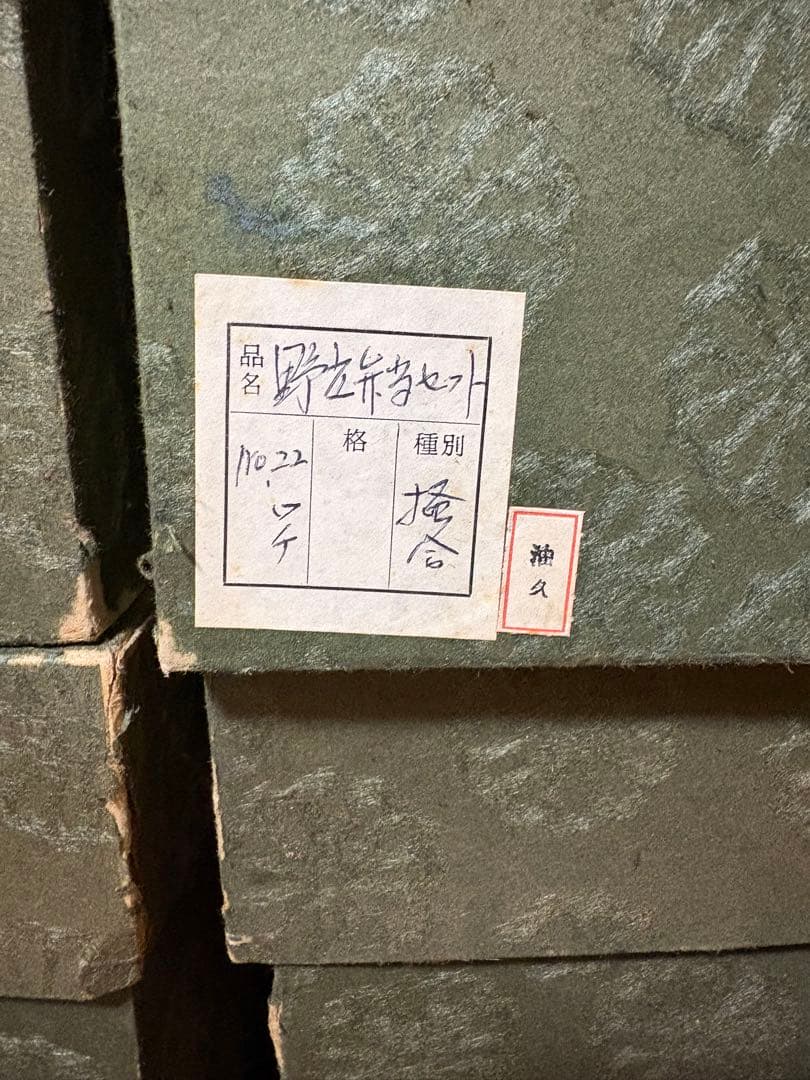 品名
野立弁当セット
No.22
格
種別
掻合
油久